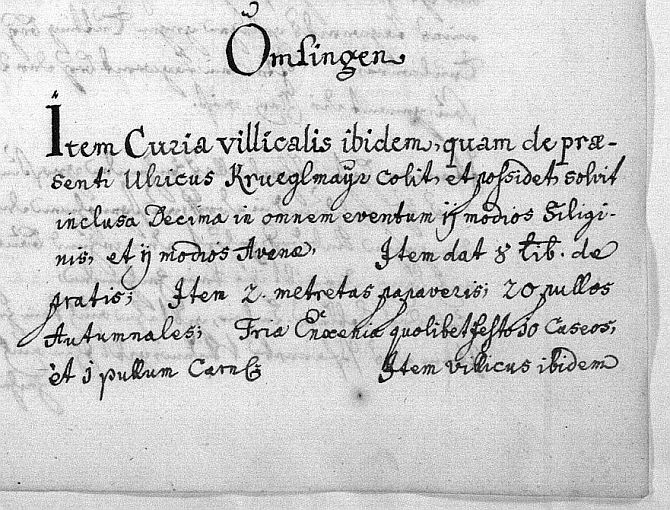 Ömsingen
Item Curia villicalis ibidem, quam de præ-
senti Ulricus Krueglmayr colit, et possidet, solvit
inclusa Decima in omnem eventum ij modios Siligi-
nis, et ij modios Avenæ. Item dat 8 lib. de
pratis; Item 2. metretas papaveris; 20 pullos
Autumnales; Tria Enxenia quolibet festo 10 Caseos,
et 1 pullum Carn
Item villicus ibidem